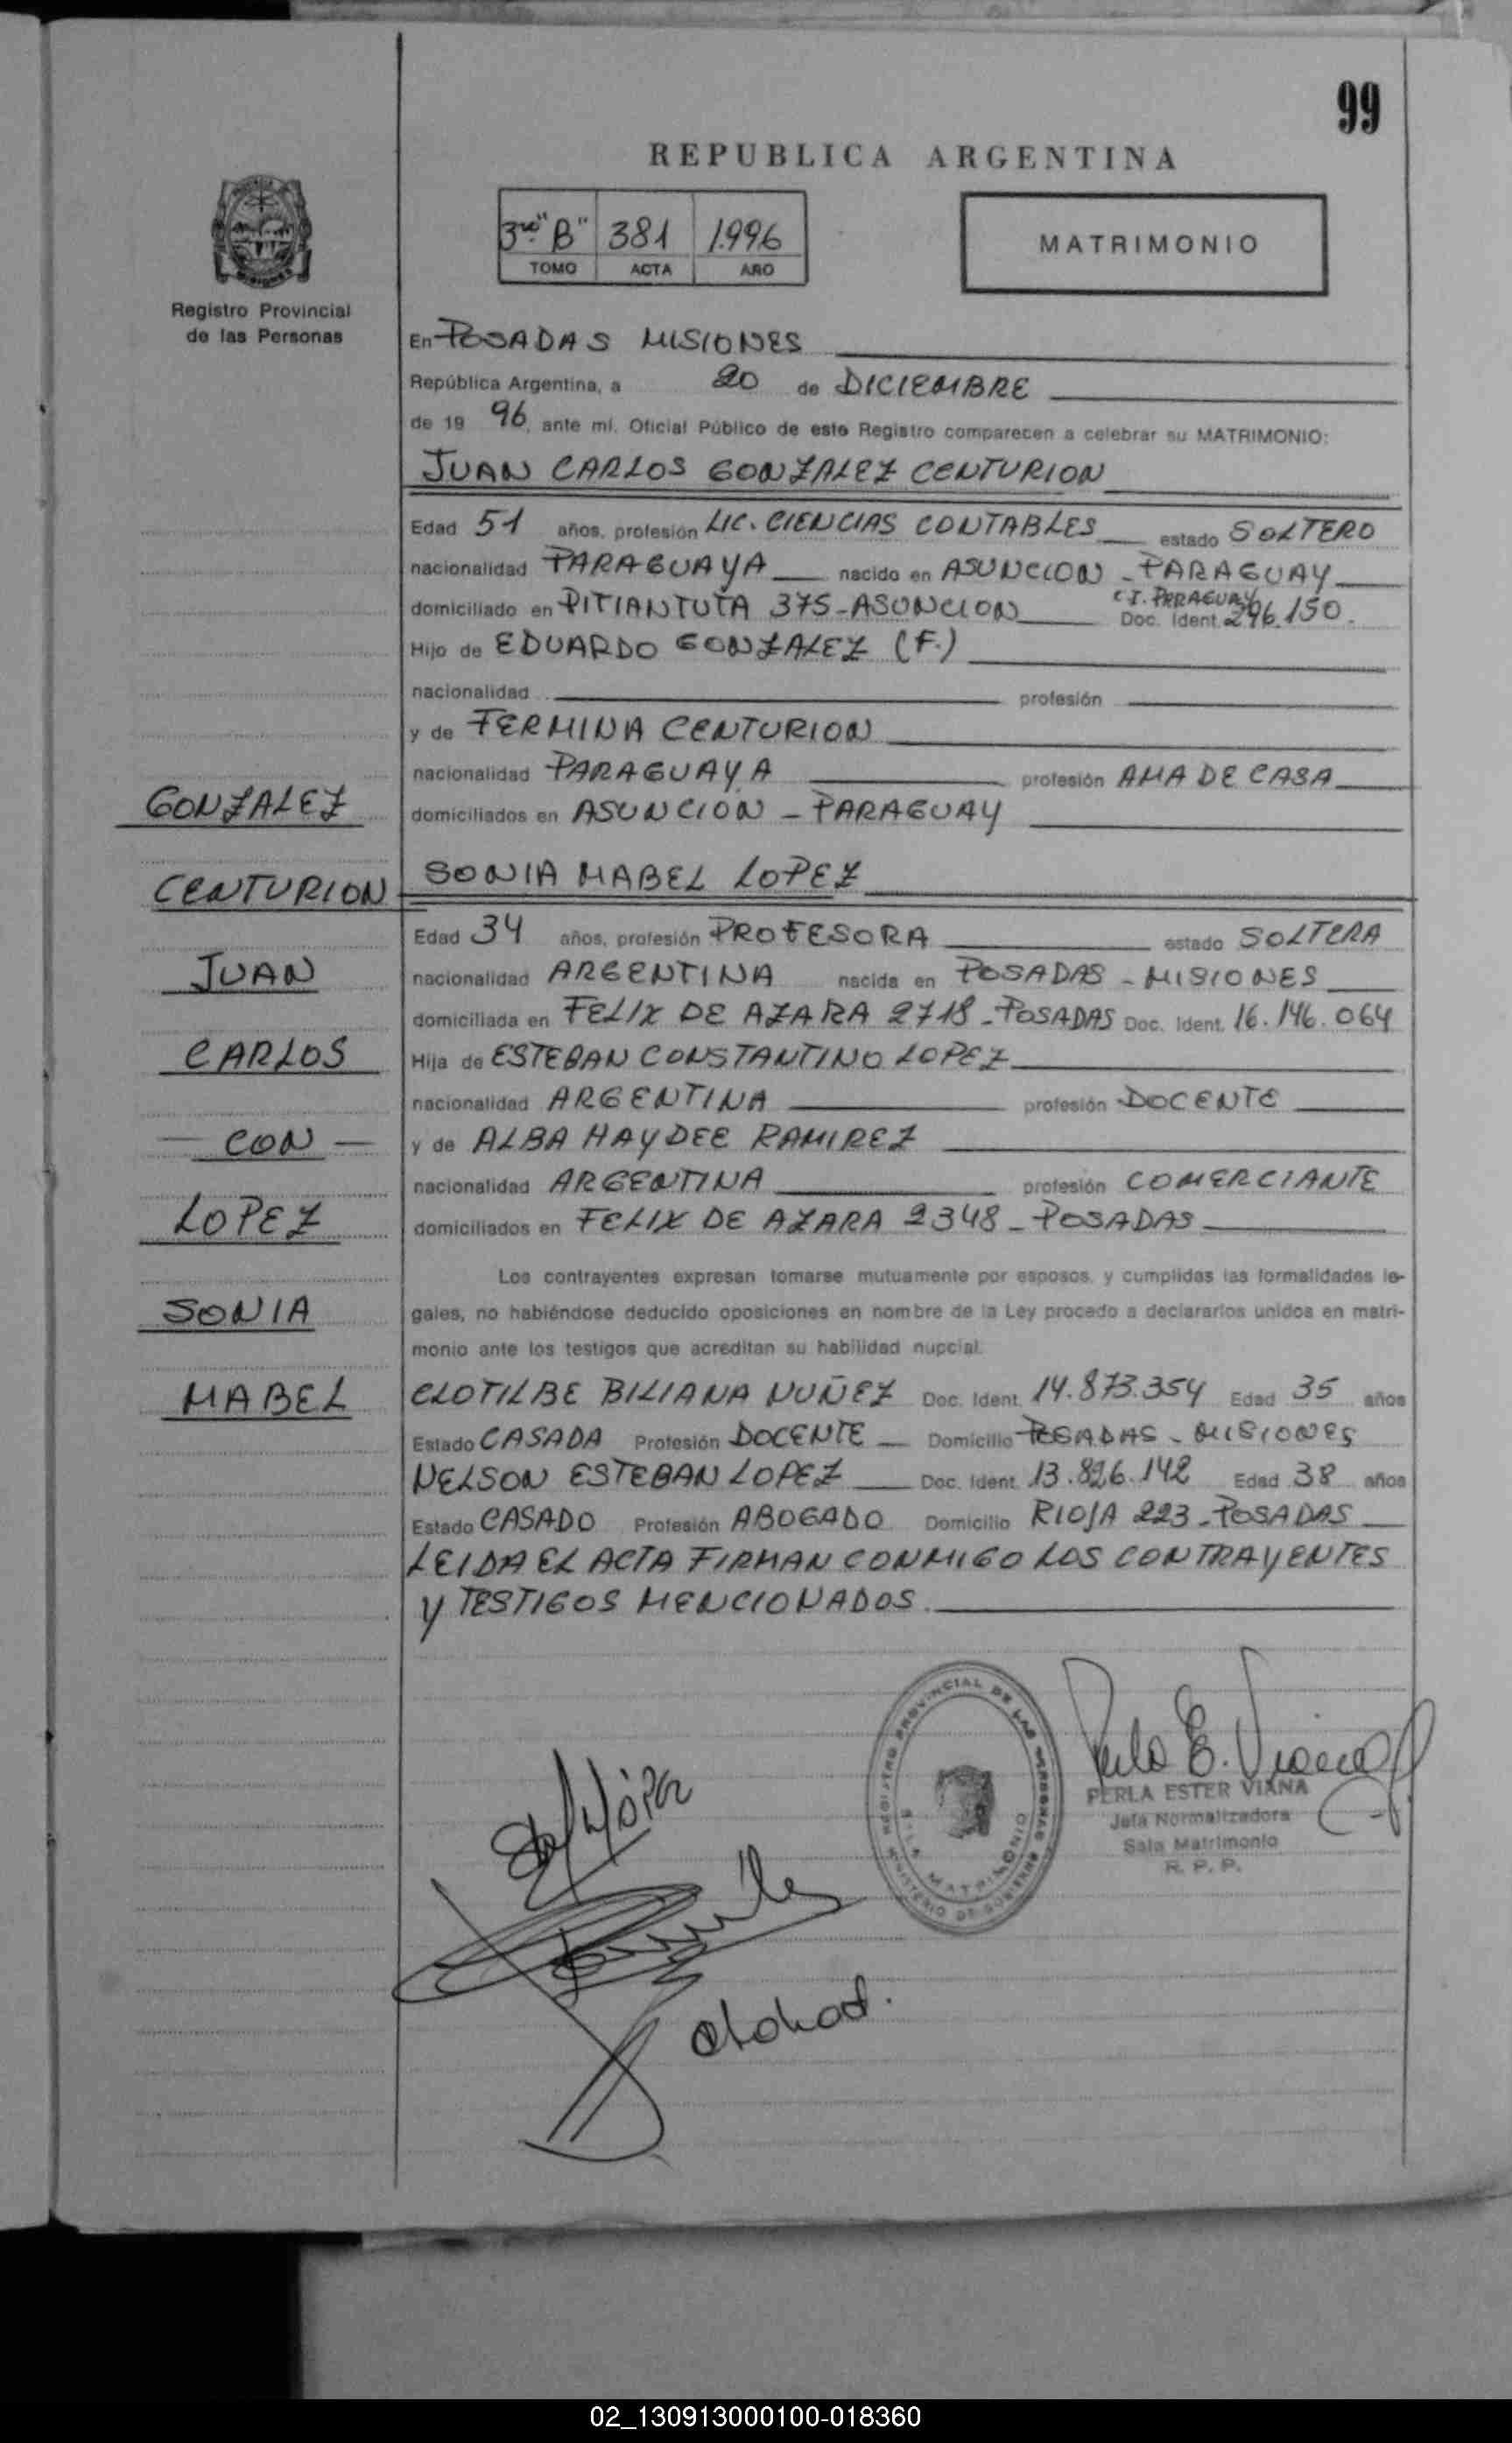 99
REPUBLICA ARGENTINA
3ro "B" 381 1996
TOMO ACTA AÑO
MATRIMONIO
Registro Provincial
de las Personas
En POSADAS MISIONES
República Argentina, a 20 de DICIEMBRE
de 19 96, ante mí, Oficial Público de este Registro comparecen a celebrar su MATRIMONIO:
JUAN CARLOS GONZALEZ CENTURION
Edad 51 años, profesión LIC. CIENCIAS CONTABLES estado SOLTERO
nacionalidad PARAGUAYA nacido en ASUNCION - PARAGUAY
domiciliado en PITIANTUTA 375 - ASUNCION C.I. PARAGUAY Doc. Ident. 296.150.
Hijo de EDUARDO GONZALEZ (F.)
nacionalidad profesión
y de FERMINA CENTURION
nacionalidad PARAGUAYA profesión AMA DE CASA
domiciliados en ASUNCION - PARAGUAY
SONIA MABEL LOPEZ
Edad 34 años, profesión PROFESORA estado SOLTERA
nacionalidad ARGENTINA nacida en POSADAS - MISIONES
domiciliada en FELIX DE AZARA 2718 - POSADAS Doc. Ident. 16.146.064
Hija de ESTEBAN CONSTANTINO LOPEZ
nacionalidad ARGENTINA profesión DOCENTE
y de ALBA HAYDEE RAMIREZ
nacionalidad ARGENTINA profesión COMERCIANTE
domiciliados en FELIX DE AZARA 2348 - POSADAS
Los contrayentes expresan tomarse mutuamente por esposos, y cumplidas las formalidades le-
gales, no habiéndose deducido oposiciones en nombre de la Ley procedo a declararlos unidos en matri-
monio ante los testigos que acreditan su habilidad nupcial.
CLOTILBE BILIANA NUÑEZ Doc. Ident. 14.873.354 Edad 35 años
Estado CASADA Profesión DOCENTE Domicilio POSADAS - MISIONES
NELSON ESTEBAN LOPEZ Doc. Ident. 13.826.142 Edad 38 años
Estado CASADO Profesión ABOGADO Domicilio RIOJA 223 - POSADAS
LEIDA EL ACTA FIRMAN CONMIGO LOS CONTRAYENTES
Y TESTIGOS MENCIONADOS.
GONZALEZ
CENTURION
JUAN
CARLOS
- CON -
LOPEZ
SONIA
MABEL
REGISTRO PROVINCIAL DE LAS PERSONAS
MINISTERIO DE GOBIERNO
SALA MATRIMONIO
Perla E. Viana
PERLA ESTER VIANA
Jefa Normalizadora
Sala Matrimonio
R. P. P.
02_130913000100-018360